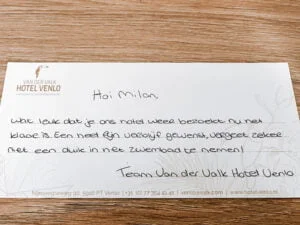 VAN DER VALK
HOTEL VENLO
Hoi Milan,
Wat leuk dat je ons hotel weer bezoekt nu het
klaar is. Een heel fijn verblijf gewenst, vergeet zeker
niet een duik in het zwembad te nemen!
Team Van der Valk Hotel Venlo
Nijmeegseweg 90, 5916 PT Venlo
www.hotelvenlo.nl